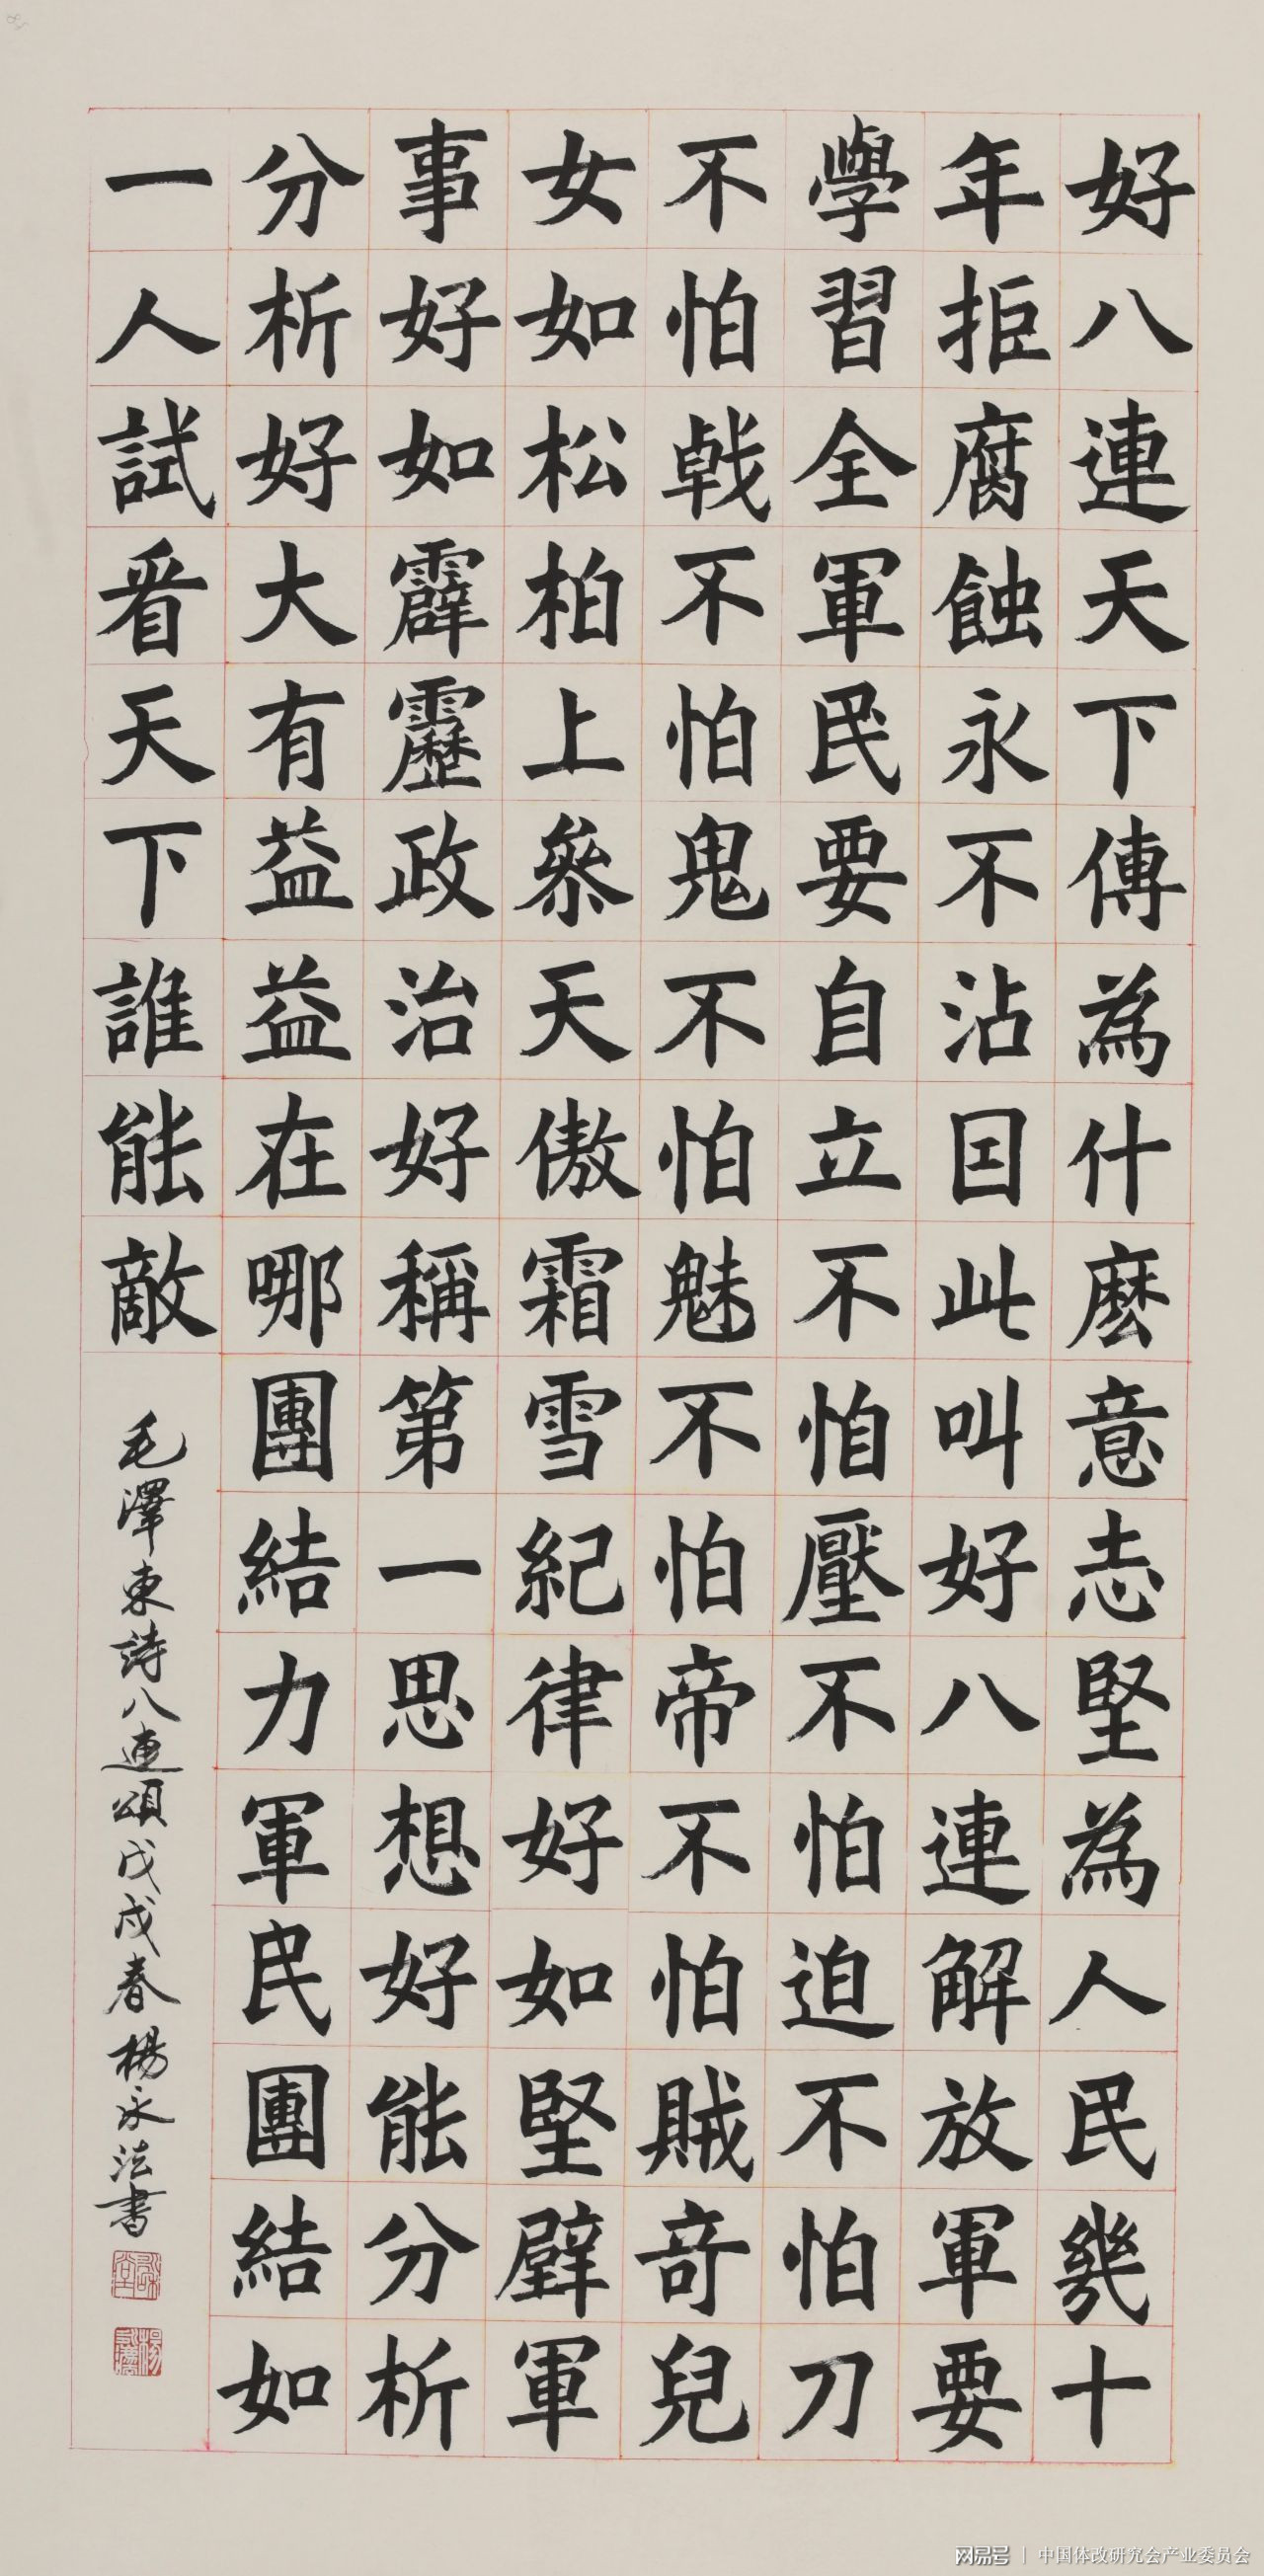 好八連天下傳為什麼意志堅為人民幾十
年拒腐蝕永不沾囙此叫好八連解放軍要
學習全軍民要自立不怕壓不怕迫不怕刀
不怕戟不怕鬼不怕魅不怕帝不怕賊奇兒
女如松柏上參天傲霜雪紀律好如堅壁軍
事好如霹靂政治好稱第一思想好能分析
分析好大有益益在哪團結力軍民團結如
一人試看天下誰能敵
毛澤東詩八連頌戊戌春楊永法書
网易号 | 中国体改研究会产业委员会